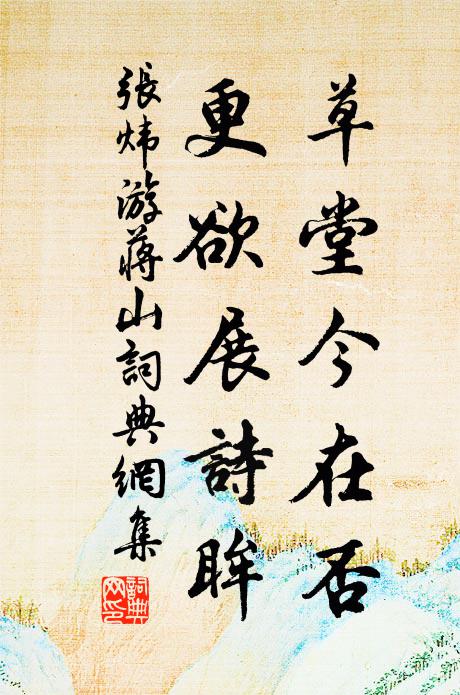 草堂今在否
更欲展詩眸
張炜游蔣山詞典網集